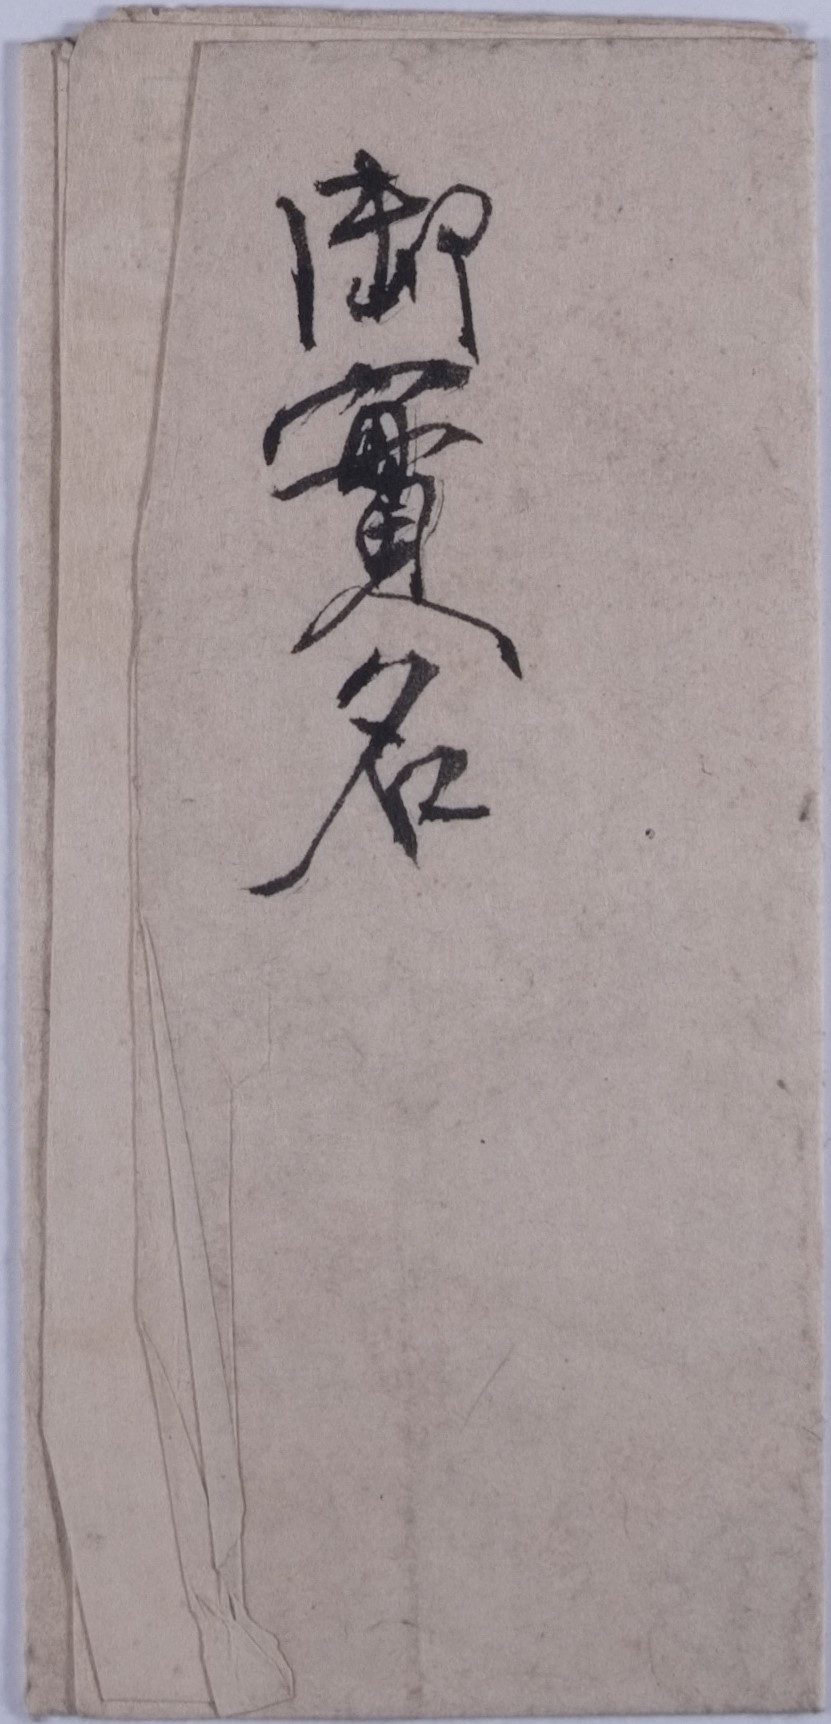 御實名